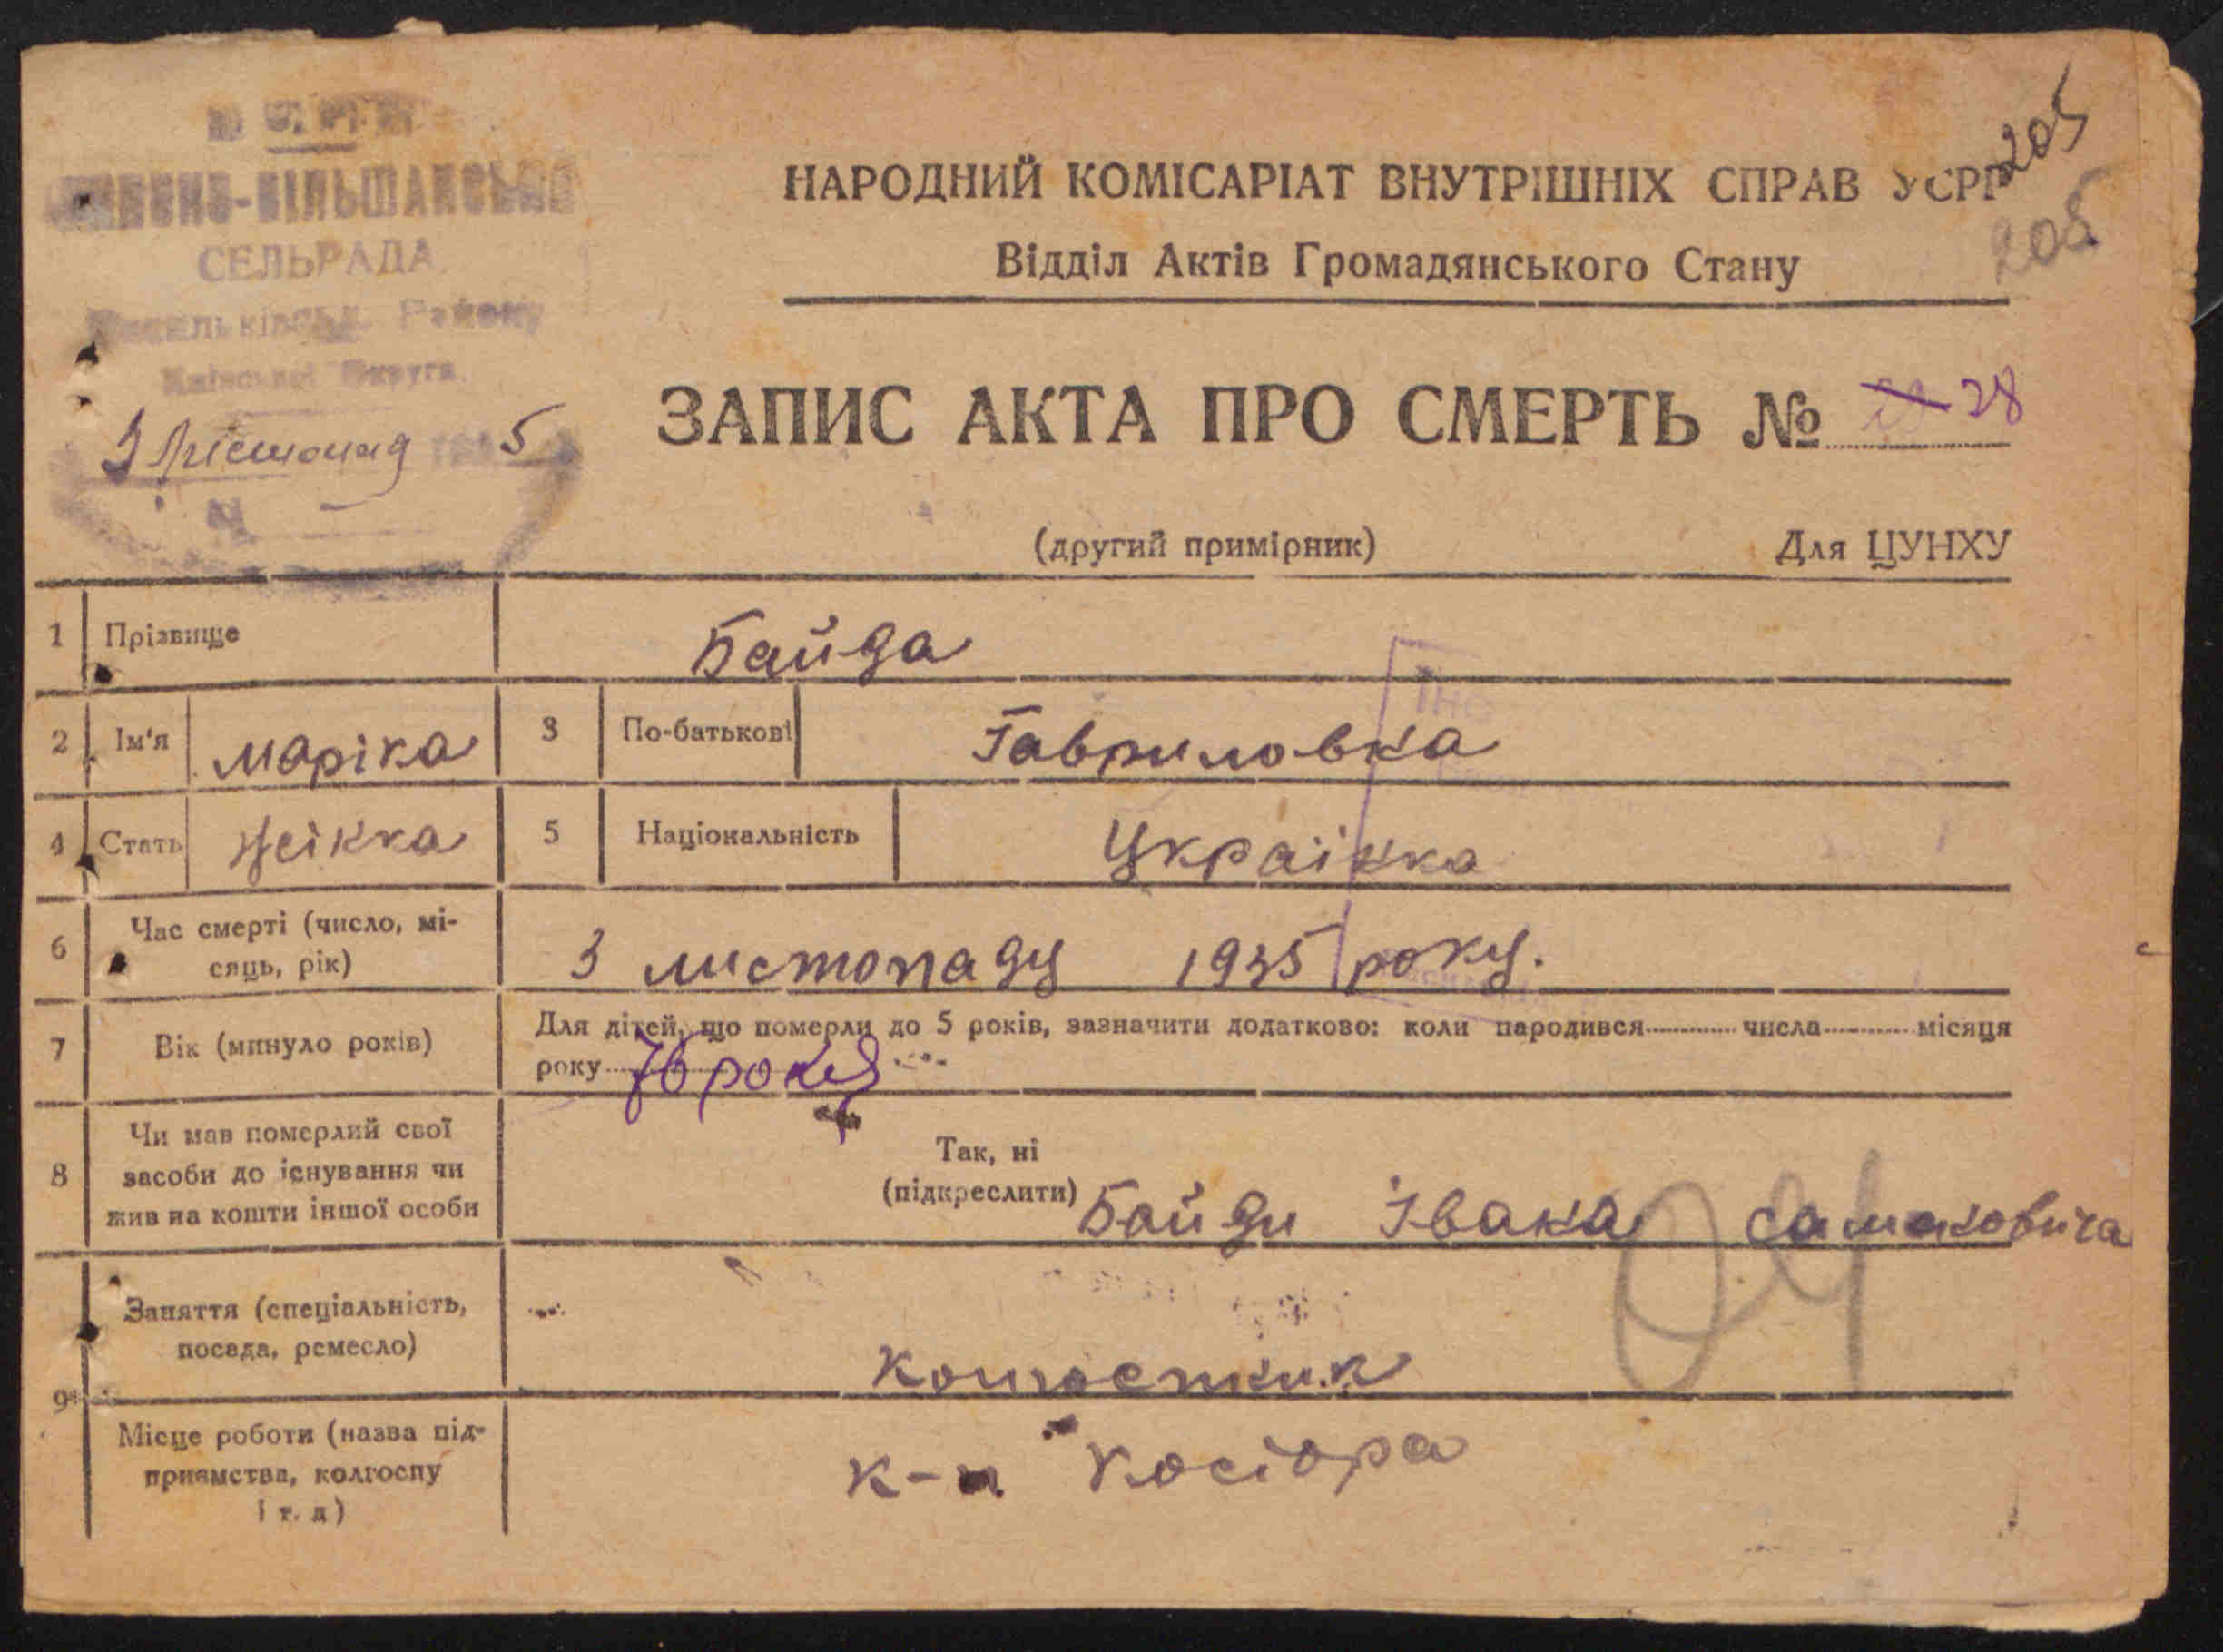 У С Р Р
СЕЛЬРАДА
Району
Округа
3 листопад 5
№ —
205
205
НАРОДНИЙ КОМІСАРІАТ ВНУТРІШНІХ СПРАВ УСРР
Відділ Актів Громадянського Стану
ЗАПИС АКТА ПРО СМЕРТЬ № 28
(другий примірник) Для ЦУНХУ
1 Прізвище Байда
2 Ім'я Маріка 3 По-батькові Гавриловка
4 Стать жінка 5 Національність Українка
6 Час смерті (число, мі-
сяць, рік) 3 листопаду 1935 року.
7 Вік (минуло років) Для дітей, що померли до 5 років, зазначити додатково: коли народився числа місяця
року 76 років
8 Чи мав померлий свої
засоби до існування чи
жив на кошти іншої особи
Так, ні
(підкреслити) Байди Івана
9 Заняття (спеціальність,
посада, ремесло)
Місце роботи (назва під-
приємства, колгоспу
і т. д) к-п Косіора
04